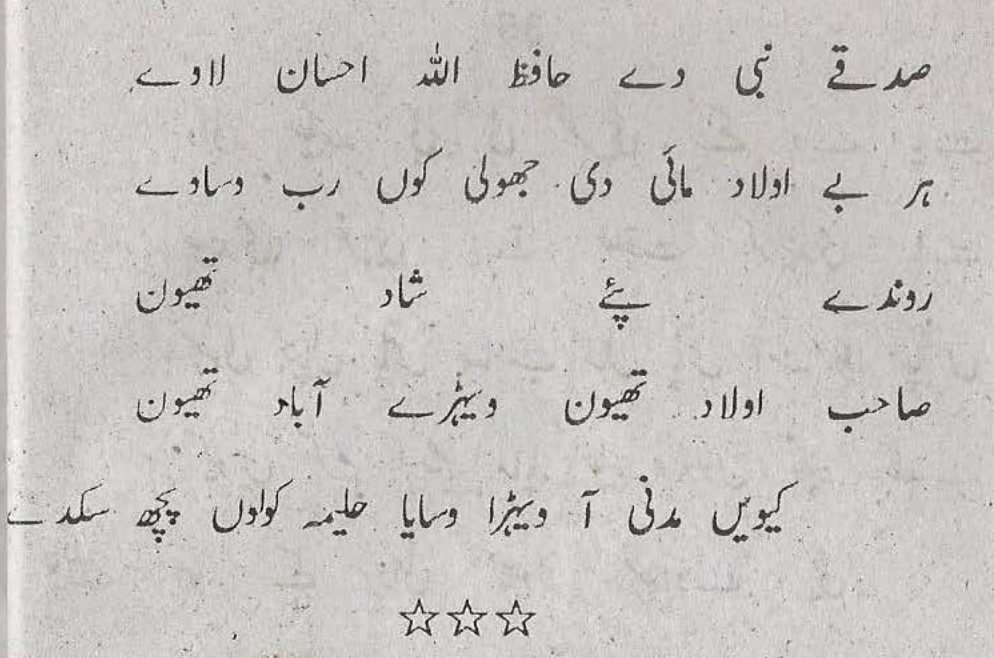 صدقے نبی دے حافظ اللہ احسان لاوے
ہر بے اولاد مائی دی جھولی کوں رب وساوے
روندے پئے شاد تھیون
صاحب اولاد تھیون ویہڑے آباد تھیون
کیویں مدنی آ ویہڑا وسایا حلیمہ کولوں پچھ سکدے
☆☆☆